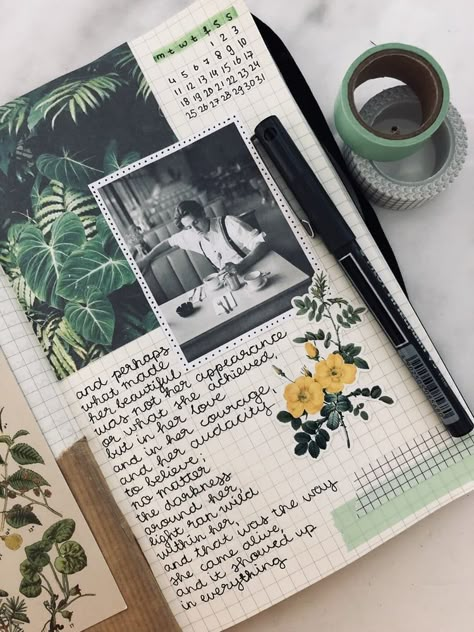 m t w t f s s
1 2 3
4 5 6 7 8 9 10
11 12 13 14 15 16 17
18 19 20 21 22 23 24
25 26 27 28 29 30 31
and perhaps
what made
her beautiful
was not her appearance
or what she achieved,
but in her love
and in her courage,
and her audacity
to believe;
no matter
the darkness
around her
light ran wild
within her,
and that was the way
she came alive,
and it showed up
in everything